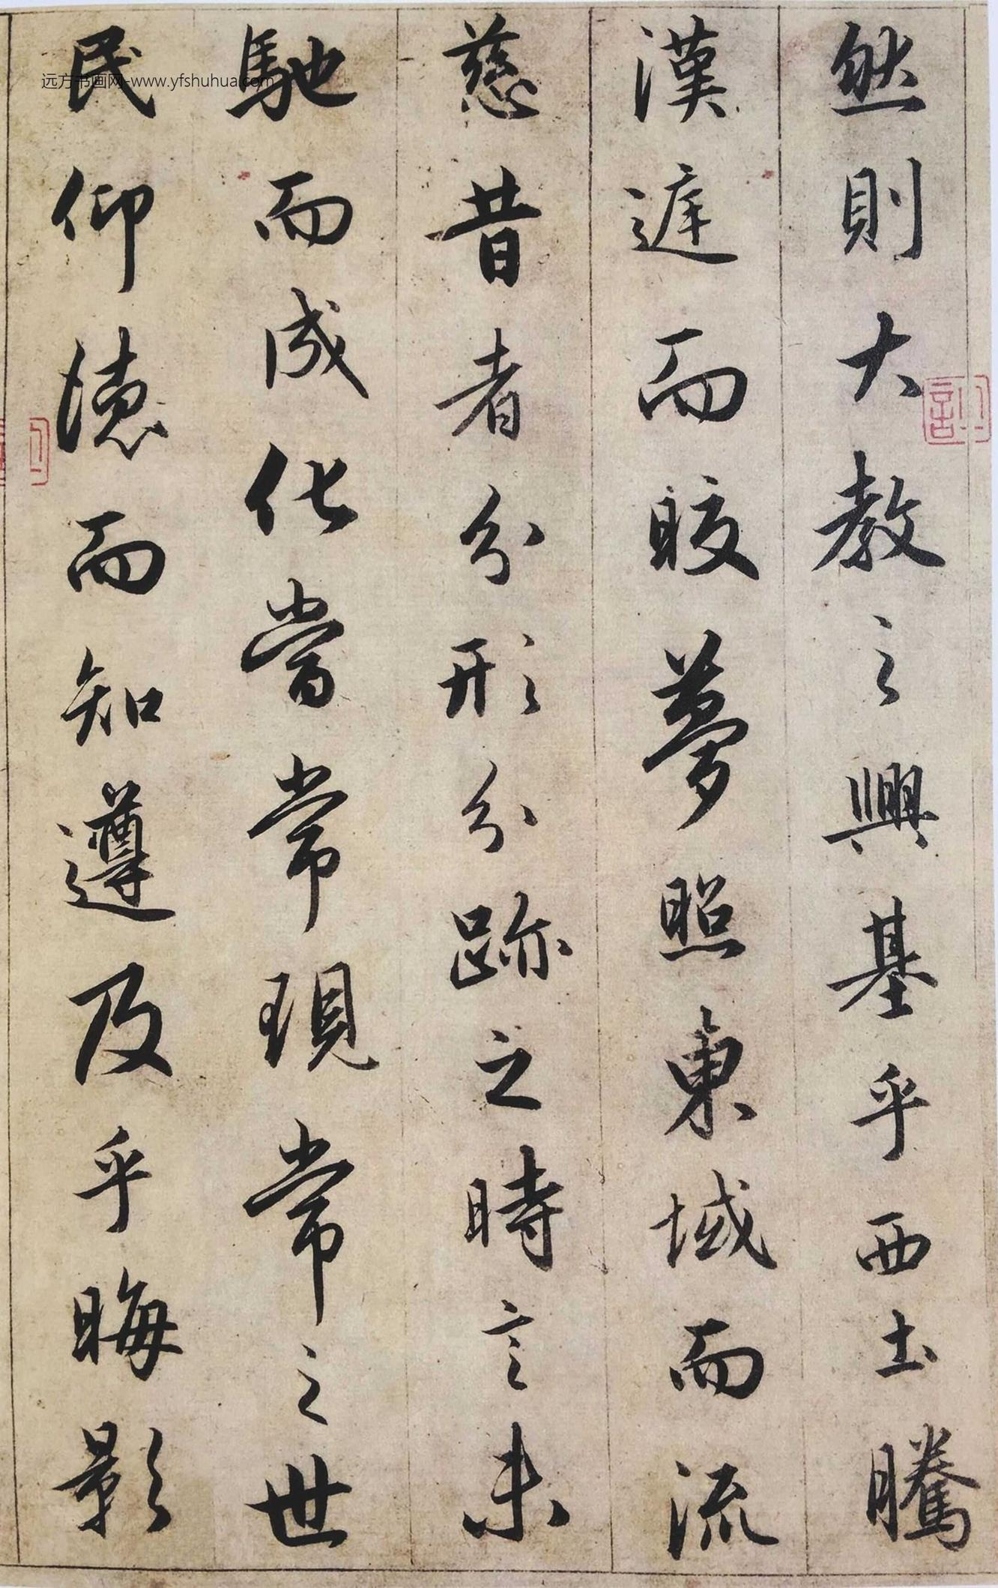 然則大教之興基乎西土騰
漢遅而皎夢照東域而流
慈昔者分形分跡之時言未
馳而成化當常現常之世
民仰德而知遵及乎晦影
远方书画网-www.yfshuhua.com